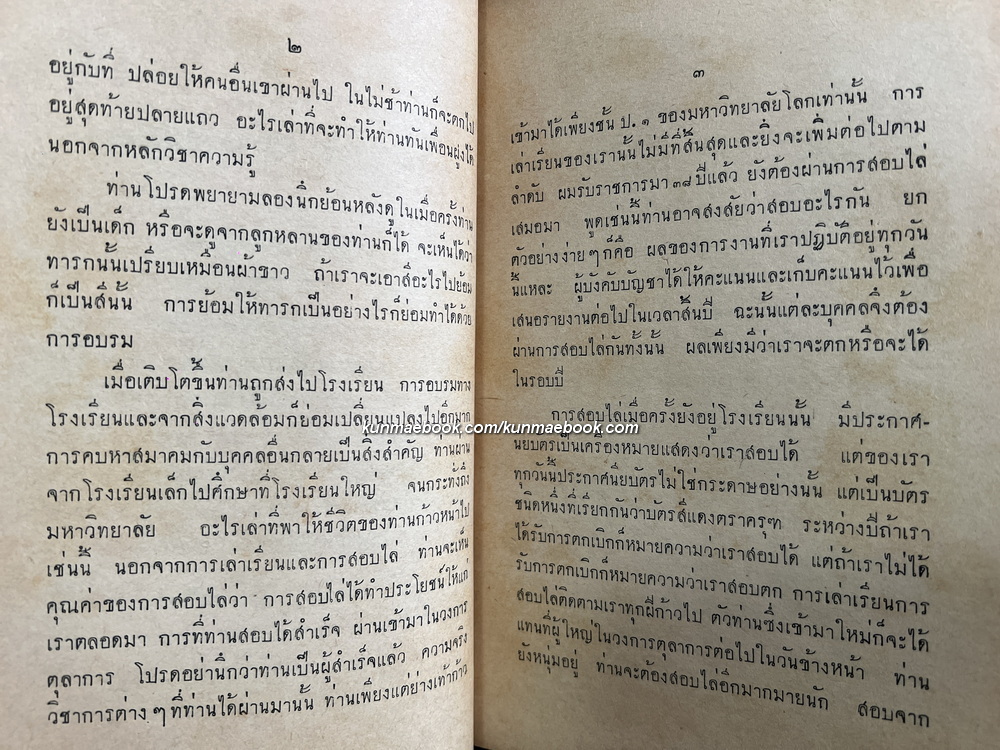 ๒
อยู่กับที่ ปล่อยให้คนอื่นเขาผ่านไป ในไม่ช้าท่านก็จะตกไป
อยู่สุดท้ายปลายแถว อะไรเล่าที่จะทำให้ท่านทันเพื่อนฝูงได้
นอกจากหลักวิชาความรู้
ท่านโปรดพยายามลองนึกย้อนหลังดูในเมื่อครั้งท่าน
ยังเป็นเด็ก หรือจะดูจากลูกหลานของท่านก็ได้ จะเห็นได้ว่า
ทารกนั้นเปรียบเหมือนผ้าขาว ถ้าเราจะเอาสีอะไรไปย้อม
ก็เป็นสีนั้น การย้อมให้ทารกเป็นอย่างไรก็ย่อมทำได้ด้วย
การอบรม
เมื่อเติบโตขึ้นท่านถูกส่งไปโรงเรียน การอบรมทาง
โรงเรียนและจากสิ่งแวดล้อมก็ย่อมเปลี่ยนแปลงไปอีกมาก
การคบหาสมาคมกับบุคคลอื่นกลายเป็นสิ่งสำคัญ ท่านผ่าน
จากโรงเรียนเล็กไปศึกษาที่โรงเรียนใหญ่ จนกระทั่งถึง
มหาวิทยาลัย อะไรเล่าที่พาให้ชีวิตของท่านก้าวหน้าไป
เช่นนี้ นอกจากการเล่าเรียนและการสอบไล่ ท่านจะเห็น
คุณค่าของการสอบไล่ว่า การสอบไล่ได้ทำประโยชน์ให้แก่
เราตลอดมา การที่ท่านสอบได้สำเร็จ ผ่านเข้ามาในวงการ
ตุลาการ โปรดอย่านึกว่าท่านเป็นผู้สำเร็จแล้ว ความจริง
วิชาการต่าง ๆ ที่ท่านได้ผ่านมานั้น ท่านเพียงแต่ย่างเท้าก้าว
๓
เข้ามาได้เพียงชั้น ป. ๑ ของมหาวิทยาลัยโลกเท่านั้น การ
เล่าเรียนของเรานั้นไม่มีที่สิ้นสุดและยิ่งจะเพิ่มต่อไปตาม
ลำดับ ผมรับราชการมา ๓๘ ปีแล้ว ยังต้องผ่านการสอบไล่
เสมอมา พูดเช่นนี้ท่านอาจสงสัยว่าสอบอะไรกัน ยก
ตัวอย่างง่าย ๆ ก็คือ ผลของการงานที่เราปฏิบัติอยู่ทุกวัน
นี้แหละ ผู้บังคับบัญชาได้ให้คะแนนและเก็บคะแนนไว้เพื่อ
เสนอรายงานต่อไปในเวลาสิ้นปี ฉะนั้นแต่ละบุคคลจึงต้อง
ผ่านการสอบไล่กันทั้งนั้น ผลเพียงมีว่าเราจะตกหรือจะได้
ในรอบปี
การสอบไล่เมื่อครั้งยังอยู่โรงเรียนนั้น มีประกาศ-
นียบัตรเป็นเครื่องหมายแสดงว่าเราสอบได้ แต่ของเรา
ทุกวันนี้ประกาศนียบัตรไม่ใช่กระดาษอย่างนั้น แต่เป็นบัตร
ชนิดหนึ่งที่เรียกกันว่าบัตรสีแดงตราครุฑ ระหว่างปีถ้าเรา
ได้รับการตกเบิกก็หมายความว่าเราสอบได้ แต่ถ้าเราไม่ได้
รับการตกเบิกก็หมายความว่าเราสอบตก การเล่าเรียนการ
สอบไล่ติดตามเราทุกฝีก้าวไป ตัวท่านซึ่งเข้ามาใหม่ก็จะได้
แทนที่ผู้ใหญ่ในวงการตุลาการต่อไปในวันข้างหน้า ท่าน
ยังหนุ่มอยู่ ท่านจะต้องสอบไล่อีกมากมายนัก สอบจาก
kunmaebook.com/kunmaebook.com